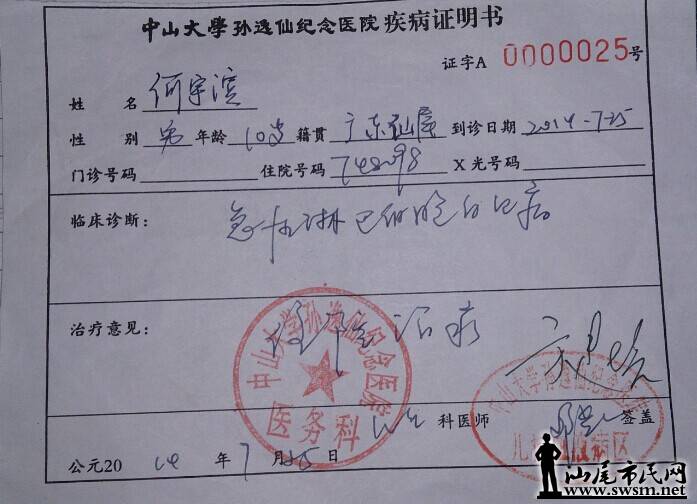 中山大學孙逸仙纪念医院疾病证明书
证字A 0000025号
姓 名 何宇滨
性 别 男 年龄 10岁 籍贯 广东汕尾 到诊日期 2014-7-25
门诊号码 住院号码 748098 X光号码
临床诊断: 急性淋巴细胞白血病
治疗意见: 住院治疗
中山大学孙逸仙纪念医院
医务科
科医师 签盖
公元2014年7月25日
汕尾市民网
www.swsm.net